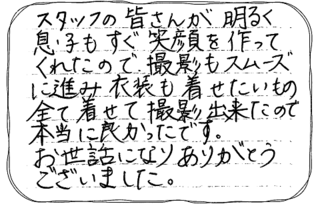 スタッフの皆さんが明るく
息子もすぐ笑顔を作って
くれたので、撮影もスムーズ
に進み衣装も着せたいもの
全て着せて撮影出来たので
本当に良かったです。
お世話になりありがとう
ございました。